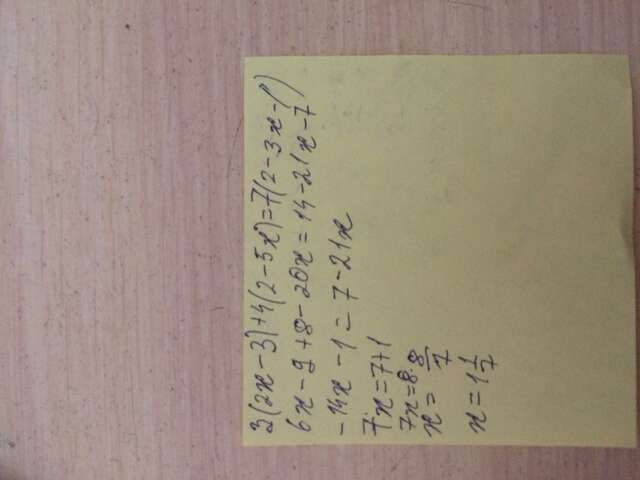 3(2x-3)+4(2-5x)=7(2-3x-1)
6x-9+8-20x=14-21x-7
-14x-1=7-21x
7x=7+1
7x=8
x=8/7
x=1 1/7